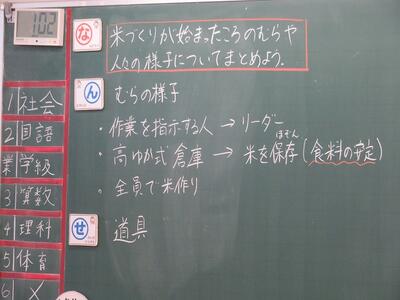 102
な
米づくりが始まったころのむらや
人々の様子についてまとめよう。
ん
むらの様子
・作業を指示する人→リーダー
・高ゆか式倉庫→米を保存(食料の安定)
ほぞん
・全員で米作り
せ
道具
1 社会
2 国語
業 学級
3 算数
4 理科
5 体育
6 ×